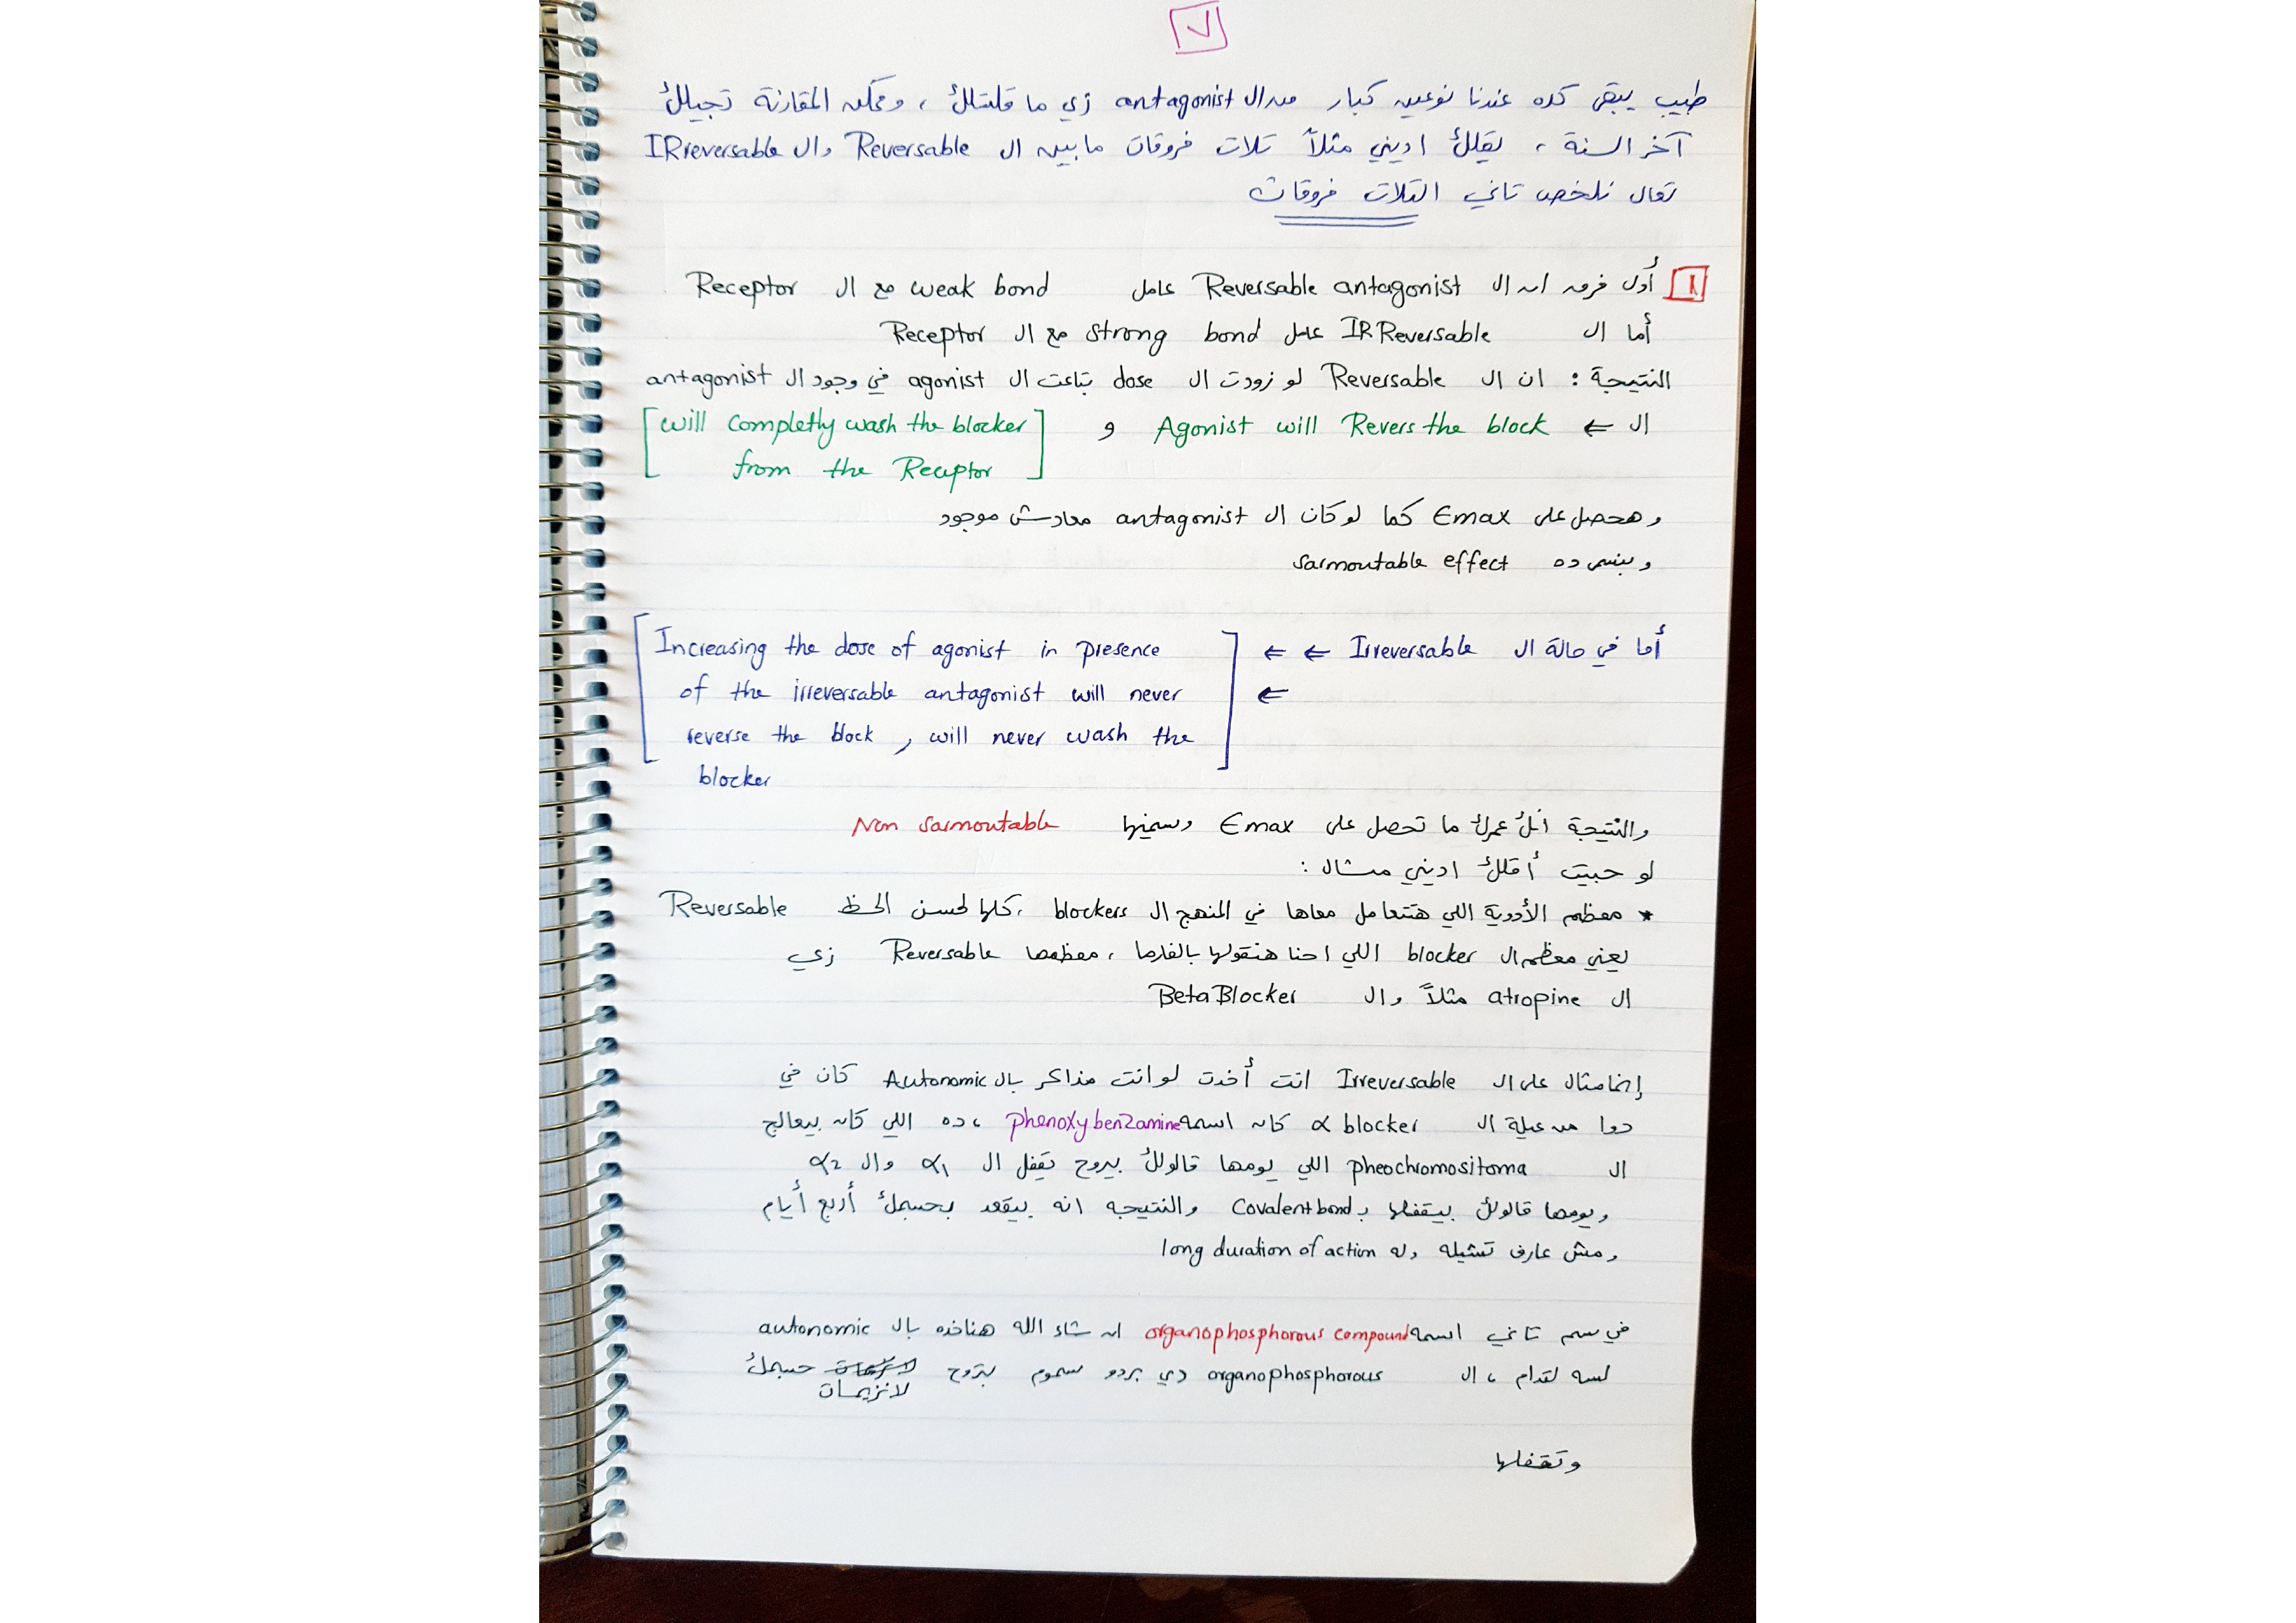 ٧
طيب يبقى كده عندنا نوعين كبار من ال antagonist زي ما قلتلك ، وممكن المقارنة تجيلك
آخر السنة ، يقلك اديني مثلاً تلات فروقات مابين ال Reversable وال IRreversable
تعال نلخص تاني التلات فروقات
١ أول فرق ان ال Reversable antagonist عامل weak bond مع ال Receptor
أما ال IRReversable عامل strong bond مع ال Receptor
النتيجة : ان ال Reversable لو زودت ال dose بتاعت ال agonist في وجود ال antagonist
ال ⇐ Agonist will Revers the block و [will completly wash the blocker
from the Receptor]
وهحصل على Emax كما لو كان ال antagonist معادش موجود
وبنسمي ده sarmoutable effect
أما في حالة ال Irreversable ⇐ ⇐ [Increasing the dose of agonist in presence
⇐ of the irreversable antagonist will never
reverse the block , will never wash the
blocker]
والنتيجة انك عمرك ما تحصل على Emax وسمينها Non sarmoutable
لو حبيت أقلك اديني مثال :
* معظم الأدوية اللي هنتعامل معاها في المنهج ال blockers ، كلها لحسن الحظ Reversable
يعني معظم ال blocker اللي احنا هنقولها بالفارما ، معظمها Reversable زي
ال atropine مثلاً وال BetaBlocker
إنما مثال على ال Irreversable انت أخدت لو انت مذاكر بال Autonomic كان في
دوا من عيلة ال α blocker كان اسمه phenoxybenzamine ، ده اللي كان بيعالج
ال pheochromositoma اللي يومها قالولك بيروح يقفل ال α1 وال α2
ويومها قالولك بيقفلها ب Covalent bond والنتيجه انه بيقعد بجسمك أربع أيام
ومش عارف تشيله وله long duration of action
في سم تاني اسمه organophosphorous compound ان شاء الله هناخده بال autonomic
لسه لقدام ، ال organophosphorous دي بردو سموم بتروح لانزيمات جسمك
وتقفلها